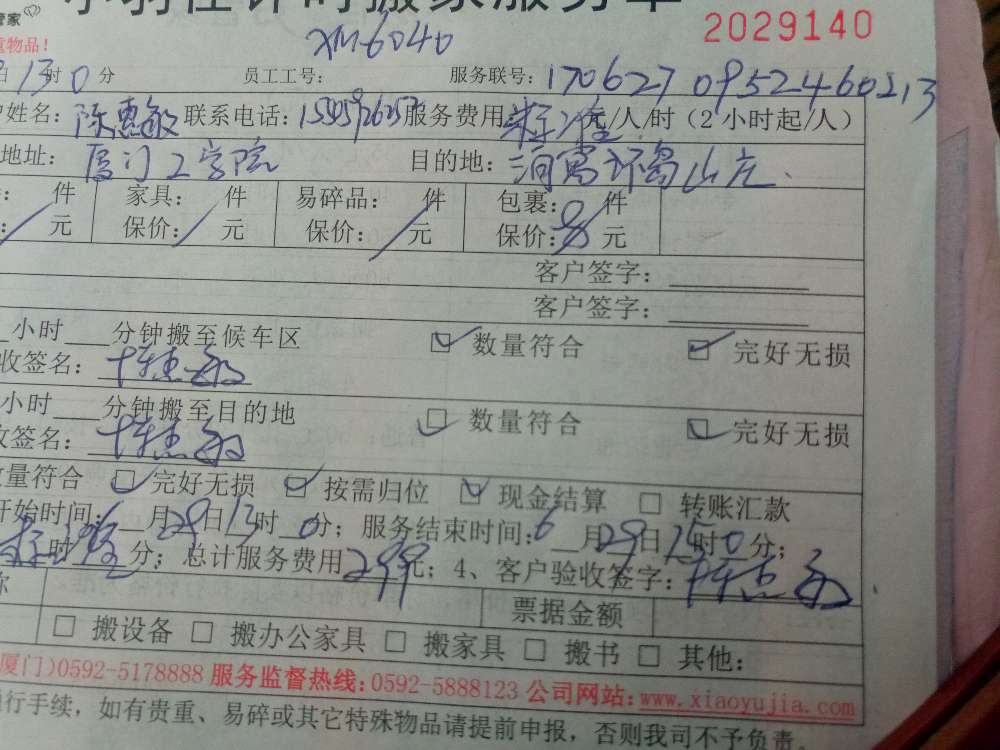 管家
2029140
重物品!
XM6040
13时0分 员工工号: 服务联号: 170627 0952460213
户姓名: 陈惠敏 联系电话: 服务费用 元/人/时(2小时起/人)
地址: 厦门工学院 目的地: 环岛山庄
件 家具: 件 易碎品: 件 包裹: 8 件
元 保价: 元 保价: 元 保价: 元
客户签字:
客户签字:
小时 分钟搬至候车区 数量符合 完好无损
收签名: 陈惠敏
小时 分钟搬至目的地 数量符合 完好无损
收签名: 陈惠敏
量符合 完好无损 按需归位 现金结算 转账汇款
开始时间: 6月29日13时0分; 服务结束时间: 6月29日15时0分;
时 分; 总计服务费用299元; 4、客户验收签字: 陈惠敏
称 票据金额
搬设备 搬办公家具 搬家具 搬书 其他:
厦门)0592-5178888 服务监督热线:0592-5888123 公司网站:www.xiaoyujia.com
行手续,如有贵重、易碎或其它特殊物品请提前申报,否则我司不予负责。